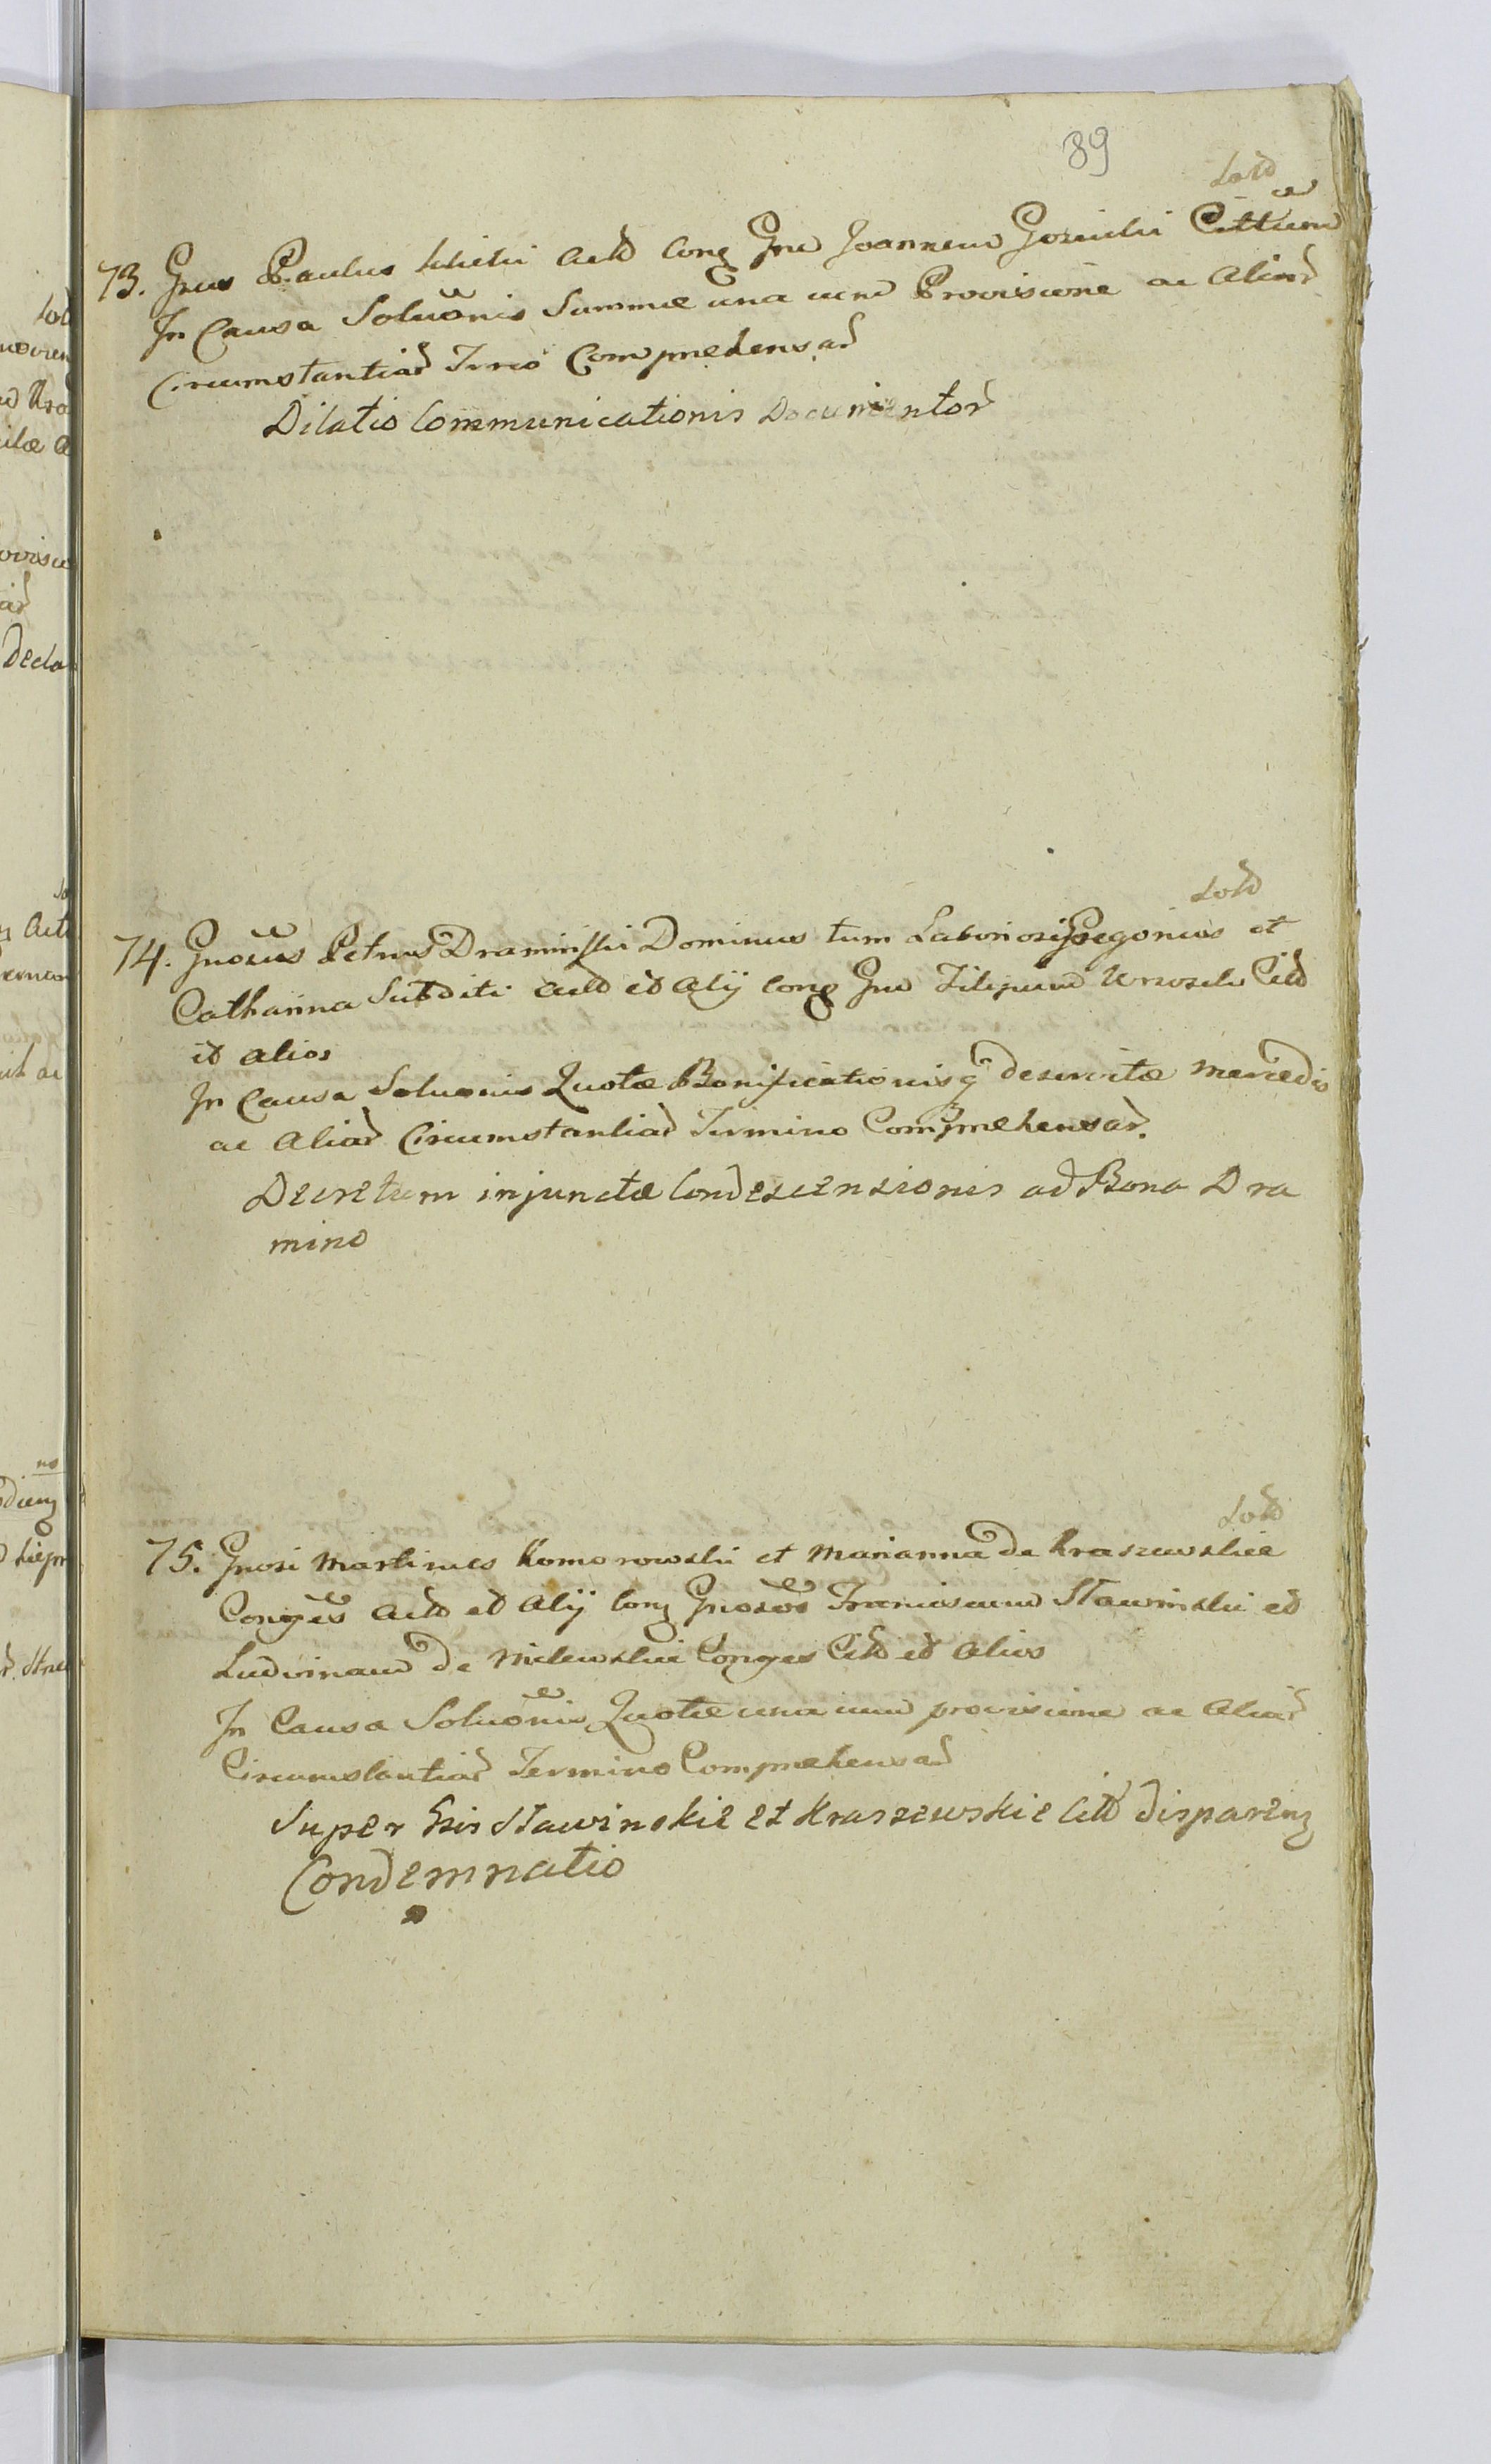 39
Sold
73. Gnus Paulus Actt Cong Gnu Joannem Citttum
In Causa Soluonis Summæ una cum Provisione ac Aliar
Circumstantiar Trno Comprehensar
Dilatio Communicationis Documentor
Sold
74. Gnosus Petrus Draminski Dominus tum Laboriosi Gregorius et
Catharina Subditi Actt et Alij Cong Gnu Filipum Citt
et alios
In Causa Soluonis Quotæ Bonificationisq deservitæ mercedis
ac Aliar Circumstantiar Termino Comprehensar.
Decretum injunctæ Condescensionis ad Bona Dra
mino
Sold
75. Gnosi Martinus Komorowski et Marianna de Kraszewskie
Conges Actt et Alij Cong Gnosos Franciscum Stawinski et
Ludvinam de Milewskie Conges Citt et Alios
In Causa Soluonis Quotæ una cum provisione ac Aliar
Circumstantiar Termino Comprehensar
Super Gsis Stawinskie et Kraszewskie Citt disparenq
Condemnatio